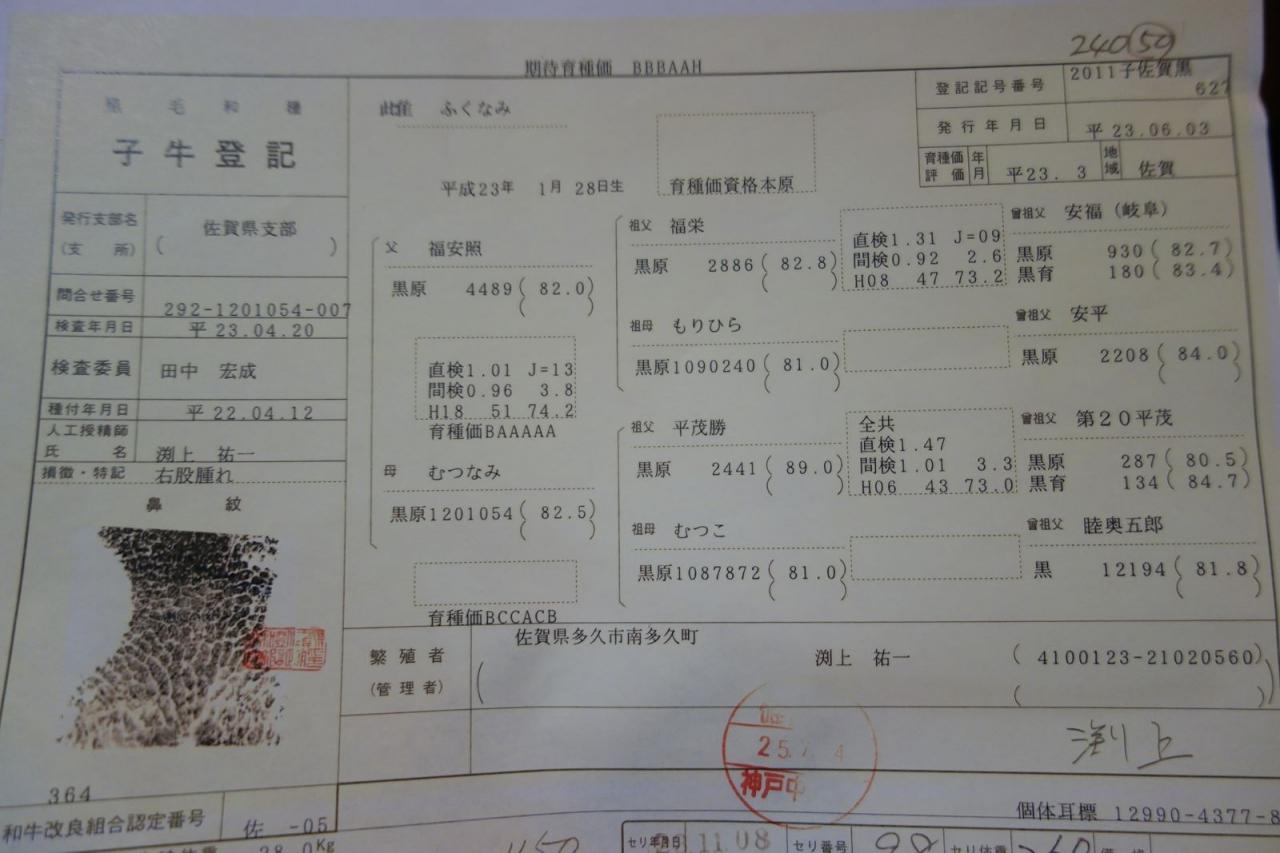 240(59)
期待育種価 BBBAAH
登記記号番号 2011子佐賀黒
627
発行年月日 平 23.06.03
育種価評価 年月 平23. 3 地域 佐賀
黒毛和種
子牛登記
発行支部名(支所) 佐賀県支部
( )
問合せ番号 292-1201054-007
検査年月日 平 23.04.20
検査委員 田中 宏成
種付年月日 平 22.04.12
人工授精師
氏名 渕上 祐一
損徴・特記 右股腫れ
鼻紋
ふくなみ
平成23年 1月 28日生
育種価資格本原
父 福安照
黒原 4489( 82.0)
直検1.01 J=13
間検0.96 3.8
H18 51 74.2
育種価BAAAAA
母 むつなみ
黒原1201054( 82.5)
育種価BCCACB
祖父 福栄
黒原 2886( 82.8)
直検1.31 J=09
間検0.92 2.6
H08 47 73.2
祖母 もりひら
黒原1090240( 81.0)
祖父 平茂勝
黒原 2441( 89.0)
全共
直検1.47
間検1.01 3.3
H06 43 73.0
祖母 むつこ
黒原1087872( 81.0)
曾祖父 安福(岐阜)
黒原 930( 82.7)
黒育 180( 83.4)
曾祖父 安平
黒原 2208( 84.0)
曾祖父 第20平茂
黒原 287( 80.5)
黒育 134( 84.7)
曾祖父 睦奥五郎
黒 12194( 81.8)
佐賀県多久市南多久町
繁殖者 渕上 祐一 ( 4100123-21020560)
(管理者)
25.
神戸中
渕上
364
個体耳標 12990-4377-8
和牛改良組合認定番号 佐 -05
28.0Kg
セリ年月日 11.08 セリ番号 98 セリ体重